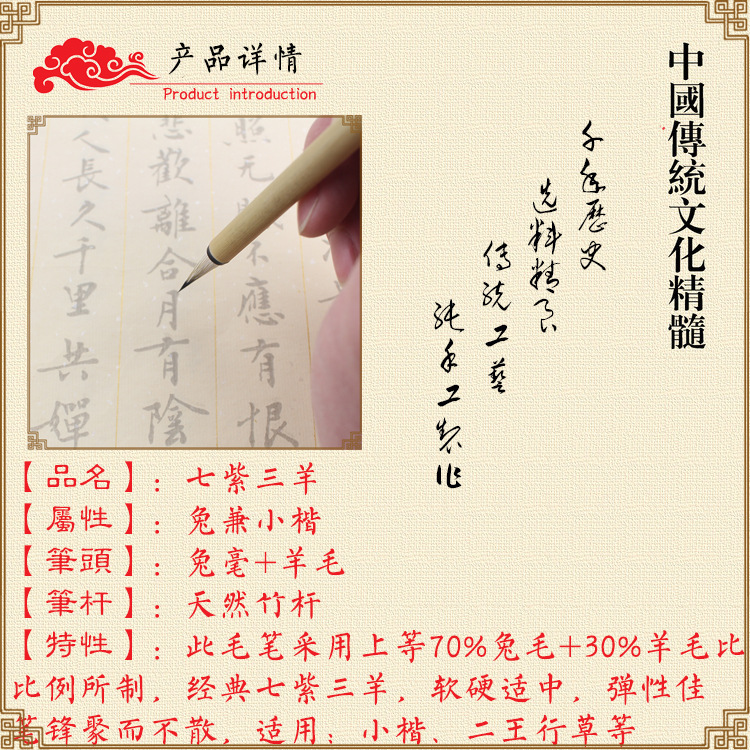 产品详情
Product introduction
中國傳統文化精髓
千年歷史
选料精良
传统工藝
纯手工製作
人長久千里共嬋
悲歡離合月有陰
照无眠不應有恨
【品名】：七紫三羊
【屬性】：兔兼小楷
【筆頭】：兔毫+羊毛
【筆杆】：天然竹杆
【特性】：此毛笔采用上等70%兔毛+30%羊毛比
比例所制，经典七紫三羊，软硬适中，弹性佳
笔锋聚而不散，适用：小楷、二王行草等